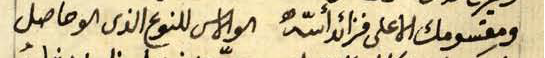 ومقسومك الاعلى فزائد أسه الوالاس للنوع الذى الوحاصل